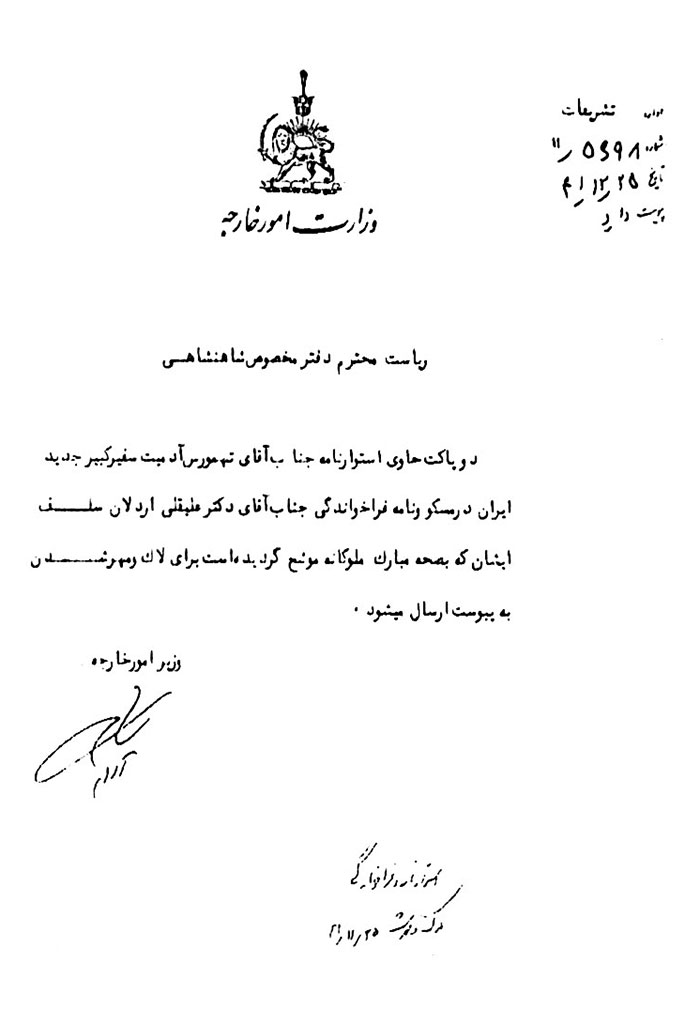 وزارت امور خارجه
اداره تشریفات
شماره ۱۱/۵۶۹۸
تاریخ ۴۱/۱۲/۲۵
پیوست دارد
ریاست محترم دفتر مخصوص شاهنشاهی
دو پاکت حاوی استوارنامه جناب آقای تهمورس آدمیت سفیر کبیر جدید
ایران در مسکو و نامه فراخواندگی جناب آقای دکتر علیقلی اردلان سلف
ایشان که بصحه مبارک ملوکانه موشح گردیده است برای لاک و مهر شدن
به پیوست ارسال میشود .
وزیر امور خارجه
آرام
استوارنامه و فراخواندگی